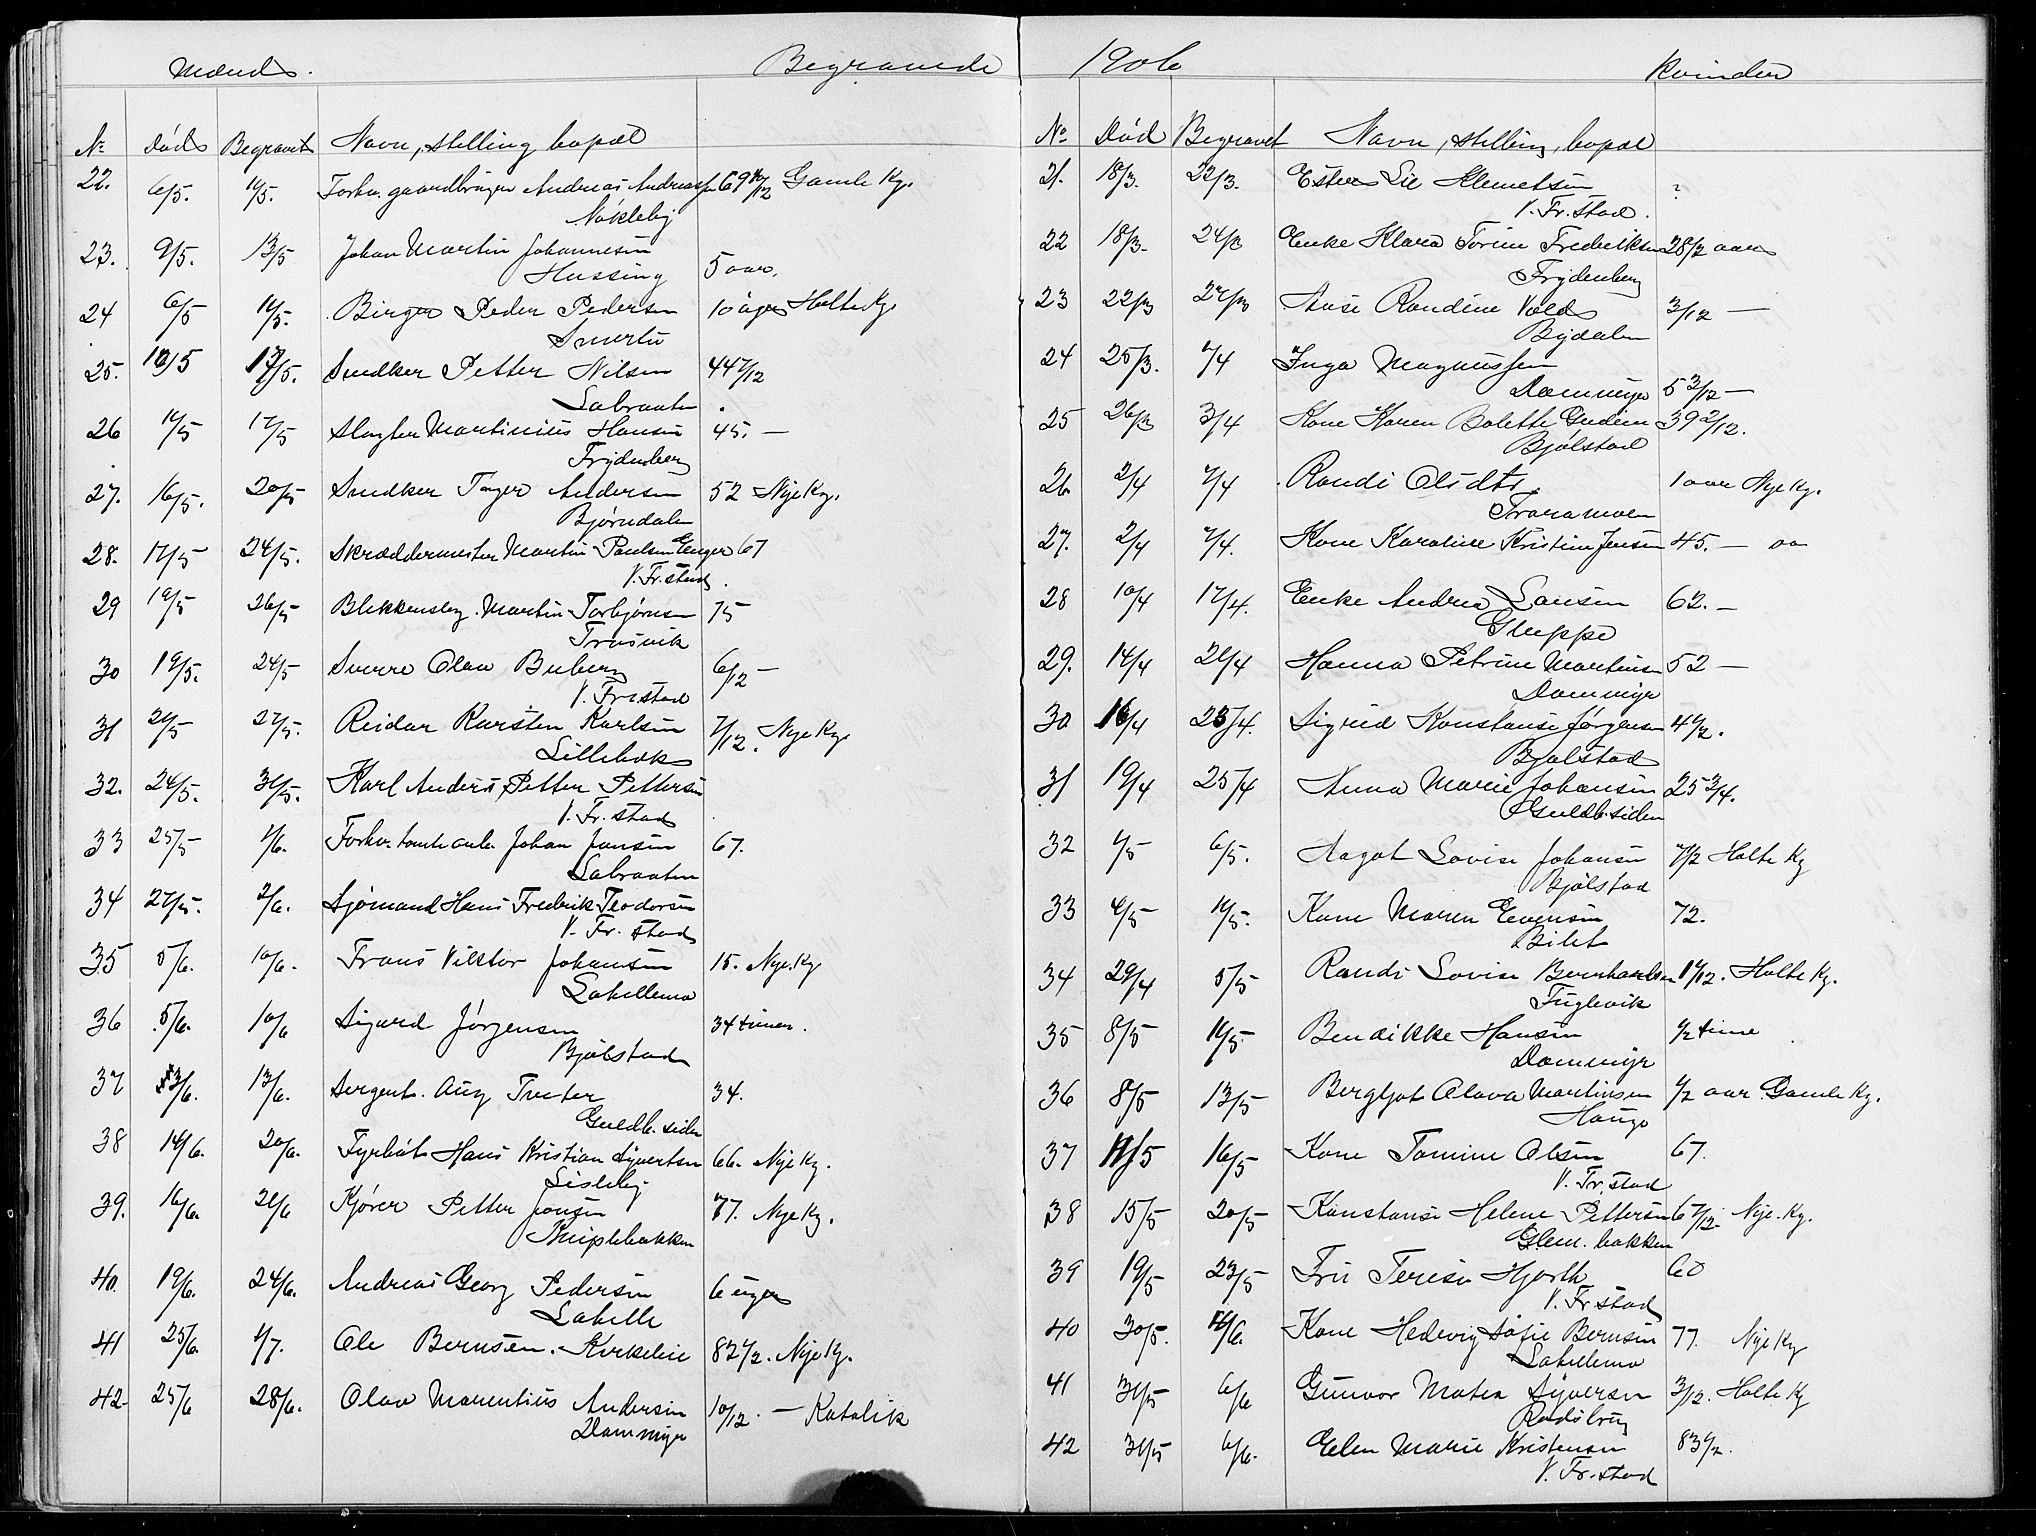 Mænd. Begravede
No Død Begravet Navn, stilling bopæl
22. 6/5. 11/5. Forhv. gaardbruger Andreas Andreassen 69 10/12 Gamle Kg.
Nøkleby
23. 9/5. 13/5 Johan Martin Johannesen
Hussing 5 aar.
24 6/5 11/5. Birger Peder Pedersen 10 uger Holte Kg.
Smertu
25. 10/5 17/5. Snedker Petter Nilsen 44 7/12
Labraaten
26 11/5 17/5 Slagter Martinius Hansen 45. —
Frydenberg
27. 16/5. 20/5 Snedker Inger Andersen 52 Nye Kg.
Bjørndalen
28. 17/5 24/5. Skræddermester Martin Paulsen Enger 67
V. Fr. stad.
29 19/5 26/5 Blikkenslag. Martin Torbjørnsen 75
Trosvik
30 19/5. 24/5 Sverre Olav Buberg 6/12 —
V. Fr stad
31 21/5 27/5. Reidar Karsten Karlsen 7/12. Nye Kg.
Lillebæk
32. 24/5. 31/5. Karl Anders Petter Pettersen
V. Fr. stad
33 25/5 1/6. Forhv. tomtearb. Johan Jansen 67.
Labraaten
34 27/5. 2/6. Sjømand Hans Fredrik Teodorsen
V. Fr. stad
35 5/6. 10/6. Frans Viktor Johansen 15. Nye Kg
Lahellemo
36 5/6. 10/6 Sigurd Jørgensen 34 timer.
Bjølstad
37 3/6. 13/6. Sergent. Aug Tveter 34.
Guldb. siden
38 14/6. 20/6. Fyrbøt Hans Kristian Syvertsen 66. Nye Kg.
Lisleby
39. 16/6. 21/6 Kjører Petter Jonsen 77. Nye Kg.
Kniplebakken
40. 19/6. 24/6. Andreas Georg Pedersen 6 uger
Lahelle
41 25/6. 1/7. Ole Bernsen. Kirkelie 82 1/2. Nye Kg.
42 25/6 28/6. Olav Marentius Andersen 10/12. — Katolik
Dammyr
1906 Kvinder
No Død Begravet Navn, stilling, bopæl
21. 18/3. 22/3. Ester Lie Klemetsen ?
V. Fr. stad.
22 18/3. 24/3 Enke Klara Torine Fredriksen 28 1/2 aar
Frydenberg
23 22/3 27/3 Aase Randine Vold 3/12 —
Bydalen
24 25/3. 1/4 Inga Magnussen
Dammyr 5 3/12 —
25 26/3 3/4 Kone Karen Bolette Gudem 39 2/12.
Bjølstad
26 2/4 7/4 Randi Olsdtr. 1 aar Nye Kg.
Traramoen
27. 2/4 7/4. Kone Karoline Kristine Jensen 45. —
28 10/4 17/4. Enke Andrea Larsen 62. —
Gluppe
29. 14/4 21/4 Hanna Petrine Martinsen 52 —
Dammyr
30 16/4 25/4. Sigrid Konstanse Jørgensen 4 1/2.
Bjølstad
31 19/4 25/4 Anna Marie Johansen 25 3/4.
Guldb. siden
32 1/5 6/5. Aagot Lovise Johansen 7/12 Holte Kg
Bjølstad
33 4/5 11/5. Kone Maren Evensen 72.
Bilet
34 29/4 5/5 Randi Lovise Bernhardsen 11/12. Holte Kg.
Fuglevik
35 8/5 11/5. Bendikke Hansen 1/2 time
Dammyr
36 8/5 13/5 Bergljot Olava Martinsen 1/2 aar Gamle Kg.
Hauge
37 11/5 16/5 Kone Tomine Olsen 67.
V. Fr. stad
38 15/5 20/5 Konstanse Helene Pettersen 6 7/12. Nye. Kg.
Glem. bakken
39 19/5 23/5 Fru Terese Hjorth 60
V. Fr stad
40 30/5. 4/6. Kone Hedevig Sofie Bernsen 77. Nye Kg
Lahellemo
41 31/5 6/6 Gunvor Matea Syversen 3/12. Holte Kg
Rødsbrug
42 31/5 6/6. Elen Marie Kristensen 83 1/2.
V. Fr. stad